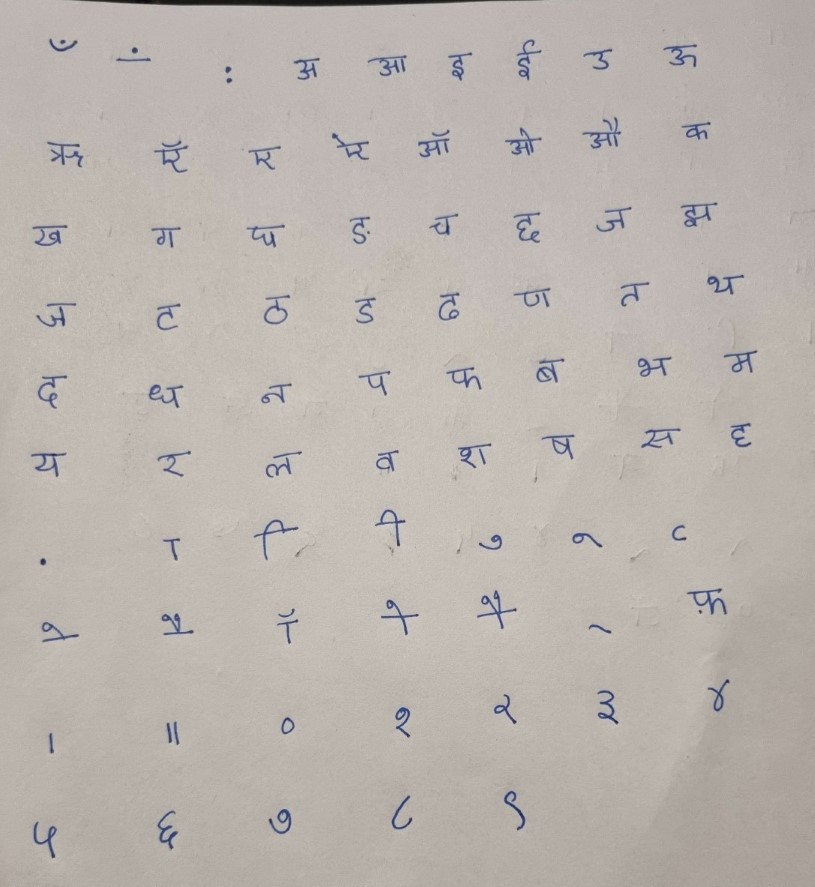 ँ ं ः अ आ इ ई उ ऊ
ऋ ऍ ए ऐ ऑ ओ औ क
ख ग घ ङ च छ ज झ
ज ट ठ ड ढ ण त थ
द ध न प फ ब भ म
य र ल व श ष स ह
़ ा ि ी ु ू ृ
े ै ॉ ो ौ ् फ़
। ॥ ० १ २ ३ ४
५ ६ ७ ८ ९